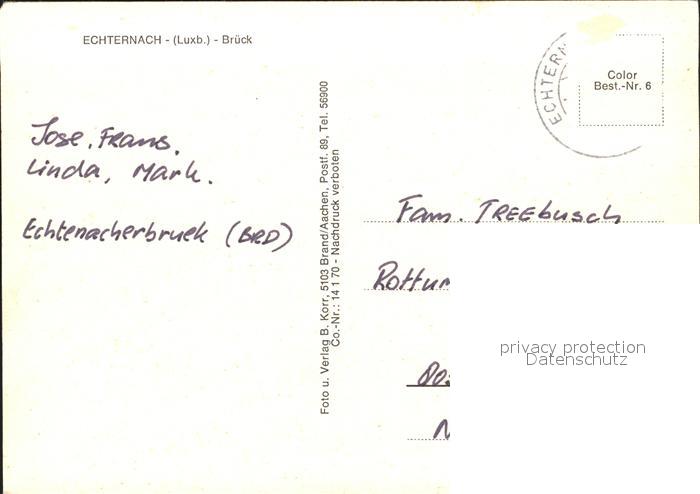 ECHTERNACH - (Luxb.) - Brück
Color
Best.-Nr. 6
Jose, Frans,
Linda, Mark.
Echtenacherbruek (BRD)
Foto u. Verlag B. Korr, 5103 Brand/Aachen, Postf. 89, Tel. 56900
Co.-Nr.: 14 1 70 - Nachdruck verboten
Fam. TREEbusch
privacy protection
Datenschutz